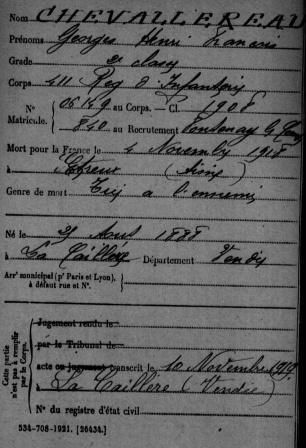 Nom CHEVALLEREAU
Prénoms Georges Henri Francois
Grade 2e classe
Corps 411 Reg d'Infanterie
N° 06149 au Corps. — Cl. 1908
Matricule. 840 au Recrutement Fontenay le
Mort pour la France le 4 Novembre 1918
à Etreux (Aisne)
Genre de mort Tué à l'ennemi
Né le 29 Aout 1888
à La Caillère Département Vendée
Arrt municipal (pr Paris et Lyon),
à défaut rue et N°.
Cette partie n'est pas à remplir par le Corps.
Jugement rendu le
par le Tribunal de
acte ou jugement transcrit le 10 Novembre 1919
à La Caillère (Vendée)
N° du registre d'état civil
534-708-1921. [26434.]